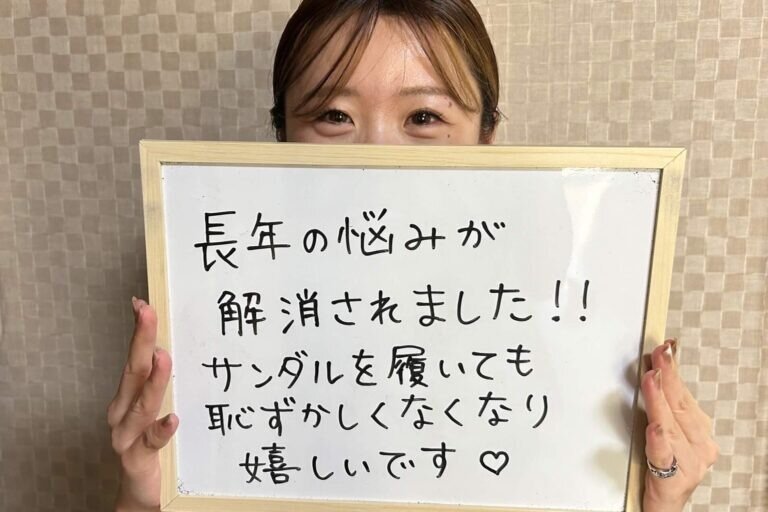 長年の悩みが
解消されました!!
サンダルを履いても
恥ずかしくなくなり
嬉しいです♡